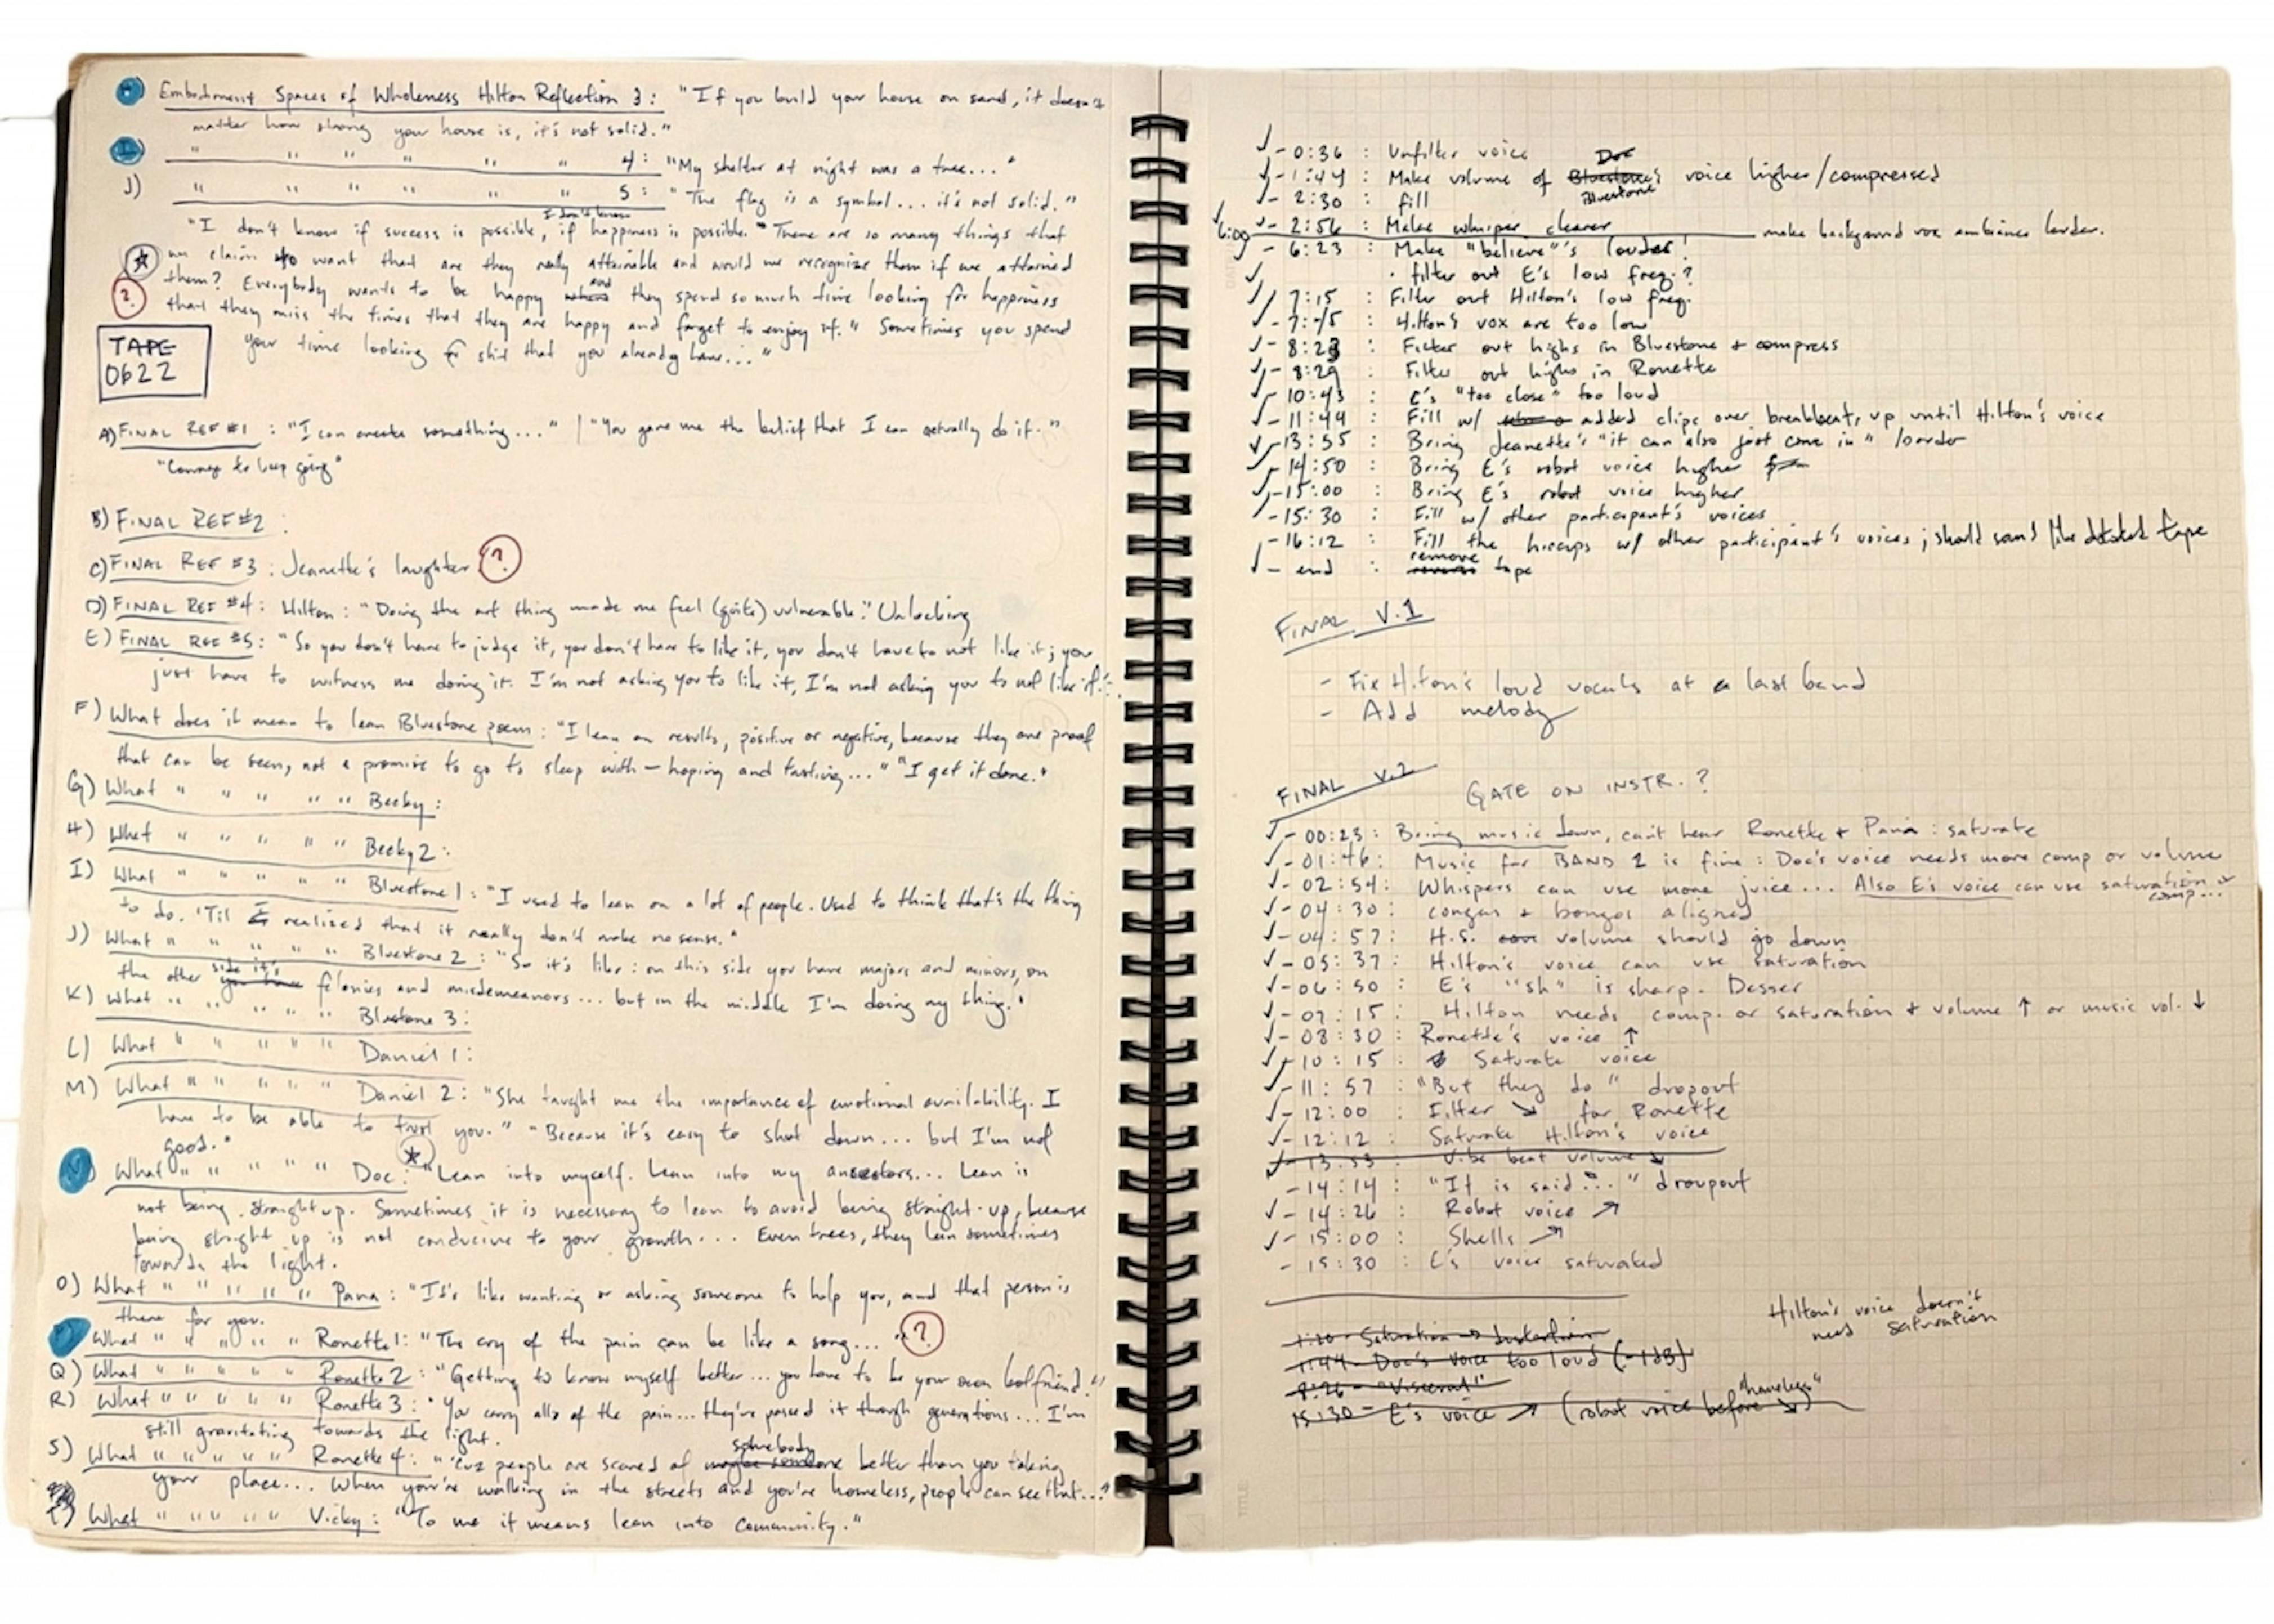 H) Embodiment Spaces of Wholeness Hilton Reflection 3: "If you build your house on sand, it doesn't
matter how strong your house is, it's not solid."
I) " " " " " " 4: "My shelter at night was a tree..."
J) " " " " " " 5: "The flag is a symbol... it's not solid."
I don't know
"I don't know if success is possible, if happiness is possible." "There are so many things that
we claim to want that are they really attainable and would we recognize them if we attained
them? Everybody wants to be happy and they spend so much time looking for happiness
that they miss the times that they are happy and forget to enjoy it." Sometimes you spend
your time looking for shit that you already have..."
?
TAPE
0622
A) FINAL REF #1 : "I can create something..." | "You gave me the belief that I can actually do it."
"Courage to keep going"
B) FINAL REF #2 :
C) FINAL REF #3 : Jeanette's laughter ?
D) FINAL REF #4 : Hilton: "Doing the art thing made me feel (quite) vulnerable." Unlocking
E) FINAL REF #5 : "So you don't have to judge it, you don't have to like it, you don't have to not like it; you
just have to witness me doing it. I'm not asking you to like it, I'm not asking you to not like it."
F) What does it mean to lean Bluestone poem : "I lean on results, positive or negative, because they are proof
that can be seen, not a promise to go to sleep with — hoping and tasting..." "I get it done."
G) What " " " " " Becky :
H) What " " " " " Becky 2 :
I) What " " " " " Bluestone 1 : "I used to lean on a lot of people. Used to think that's the thing
to do. 'Til I realized that it really don't make no sense."
J) What " " " " " Bluestone 2 : "So it's like: on this side you have majors and minors, on
the other side it's felonies and misdemeanors... but in the middle I'm doing my thing."
K) What " " " " " Blustone 3:
L) What " " " " " Daniel 1:
M) What " " " " " Daniel 2: "She taught me the importance of emotional availability. I
have to be able to trust you." "Because it's easy to shut down... but I'm not
good."
N) What " " " " " Doc: "Lean into myself. Lean into my ancestors... Lean is
not being straight up. Sometimes it is necessary to lean to avoid being straight-up, because
being straight up is not conducive to your growth... Even trees, they lean sometimes
towards the light.
O) What " " " " " Pana : "It's like wanting or asking someone to help you, and that person is
there for you.
What " " " " " Ronette 1: "The cry of the pain can be like a song..." ?
Q) What " " " " " Ronette 2 : "Getting to know myself better... you have to be your own bolfriend."
R) What " " " " " Ronette 3 : "You carry alls of the pain... they've passed it though generations... I'm
still gravitating towards the light.
S) What " " " " " Ronette 4: "'Cuz people are scared of somebody better than you taking
your place... When you're walking in the streets and you're homeless, people can see that..."
T) What " " " " " Vicky : "To me it means lean into community."
✓ - 0:36 : Unfilter voice
Doc
✓ - 1:44 : Make volume of Bluestone's voice higher/compressed
Bluestone
✓ - 2:30 : fill
✓ - 2:56 : Make whisper clearer
6:09 make background vox ambiance louder.
- 6:23 : Make "believe"'s louder!
✓ · filter out E's low freq.?
✓ 7:15 : Filter out Hilton's low freq.
✓ - 7:45 : Hilton's vox are too low
✓ - 8:23 : Filter out highs in Bluestone + compress
✓ - 8:29 : Filter out highs in Ronette
✓ - 10:43 : E's "too close" too loud
✓ - 11:44 : Fill w/ added clips over breakbeat, up until Hilton's voice
✓ - 13:55 : Bring Jeanette's "it can also just come in" louder
✓ - 14:50 : Bring E's robot voice higher
✓ - 15:00 : Bring E's robot voice higher
- 15:30 : Fill w/ other participant's voices
- 16:12 : Fill the hiccups w/ other participant's voices; should sound like dictated tape
✓ - end : remove reverse tape
FINAL V.1
- Fix Hilton's loud vocals at a last band
- Add melody
FINAL V.2
GATE ON INSTR.?
✓ - 00:23 : Bring music down, can't hear Ronette + Pana : saturate
✓ - 01:46 : Music for BAND 2 is fine : Doc's voice needs more comp or volume
✓ - 02:54 : Whispers can use more juice... Also E's voice can use saturation +
comp...
✓ - 04:30 : congas + bongos aligned
✓ - 04:57 : H.S. volume should go down
✓ - 05:37 : Hilton's voice can use saturation
✓ - 06:50 : E's "sh" is sharp. Desser
✓ - 07:15 : Hilton needs comp. or saturation + volume ↑ or music vol. ↓
✓ - 08:30 : Ronette's voice ↑
✓ - 10:15 : Saturate voice
✓ - 11:57 : "But they do" dropout
✓ - 12:00 : Filter ↘ for Ronette
✓ - 12:12 : Saturate Hilton's voice
✓ - 13:53 : Vibe beat volume ↘
- 14:14 : "It is said..." droupout
✓ - 14:26 : Robot voice ↗
✓ - 15:00 : Shells ↗
- 15:30 : E's voice saturated
Hilton's voice doesn't
need saturation
1:20 - Saturation → distortion
1:44 - Doc's voice too loud (-1dB)
8:26 - "Visceral"
"homeless"
15:30 - E's voice ↗ (robot voice before ↘)